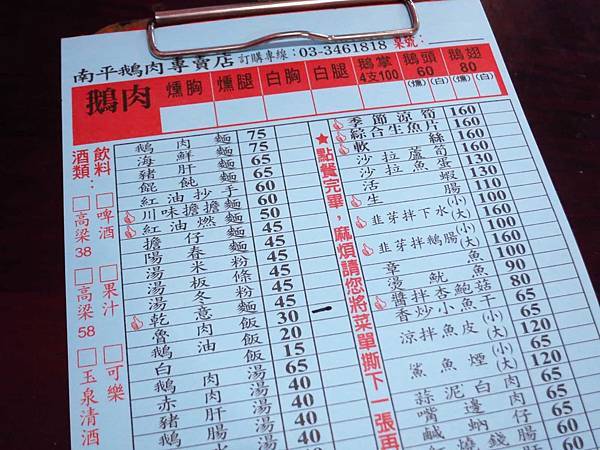 南平鵝肉專賣店 訂購專線：03-3461818 桌號：
鵝肉 燻胸 燻腿 白胸 白腿 鵝掌 4支100 鵝頭 60 (燻)(白) 鵝翅 80 (燻)(白)
飲料
啤酒
果汁
可樂
酒類：
高梁 38
高梁 58
玉泉清酒
鵝肉麵 75
海鮮麵 75
豬肝麵 65
餛飩麵 65
紅油抄手 60
川味擔擔麵 60
紅油燃麵 50
擔仔麵 45
陽春麵 45
湯米粉 45
湯板條 45
湯冬粉 45
乾意麵 45
魯肉飯 30 一
鵝油飯 20
白飯 15
鵝肉湯 65
赤肉湯 40
豬肝湯 40
鵝腸湯 40
★點餐完畢，麻煩請您將菜單撕下一張再
季節涼筍 160
綜合生魚片 160
軟絲 160
沙拉蘆筍 130
沙拉魚蛋 130
活蝦 130
生腸 110
韭芽拌下水 (小) 100 (大) 160
韭芽拌鵝腸 (小) 100 (大) 160
章魚 100
燙魷魚 90
醬拌杏鮑菇 80
香炒小魚干 65
涼拌魚皮 (小) 65 (大) 120
鯊魚煙 (小) 65 (大) 120
蒜泥白肉 65
嘴邊肉 65
鹹蚋仔 65